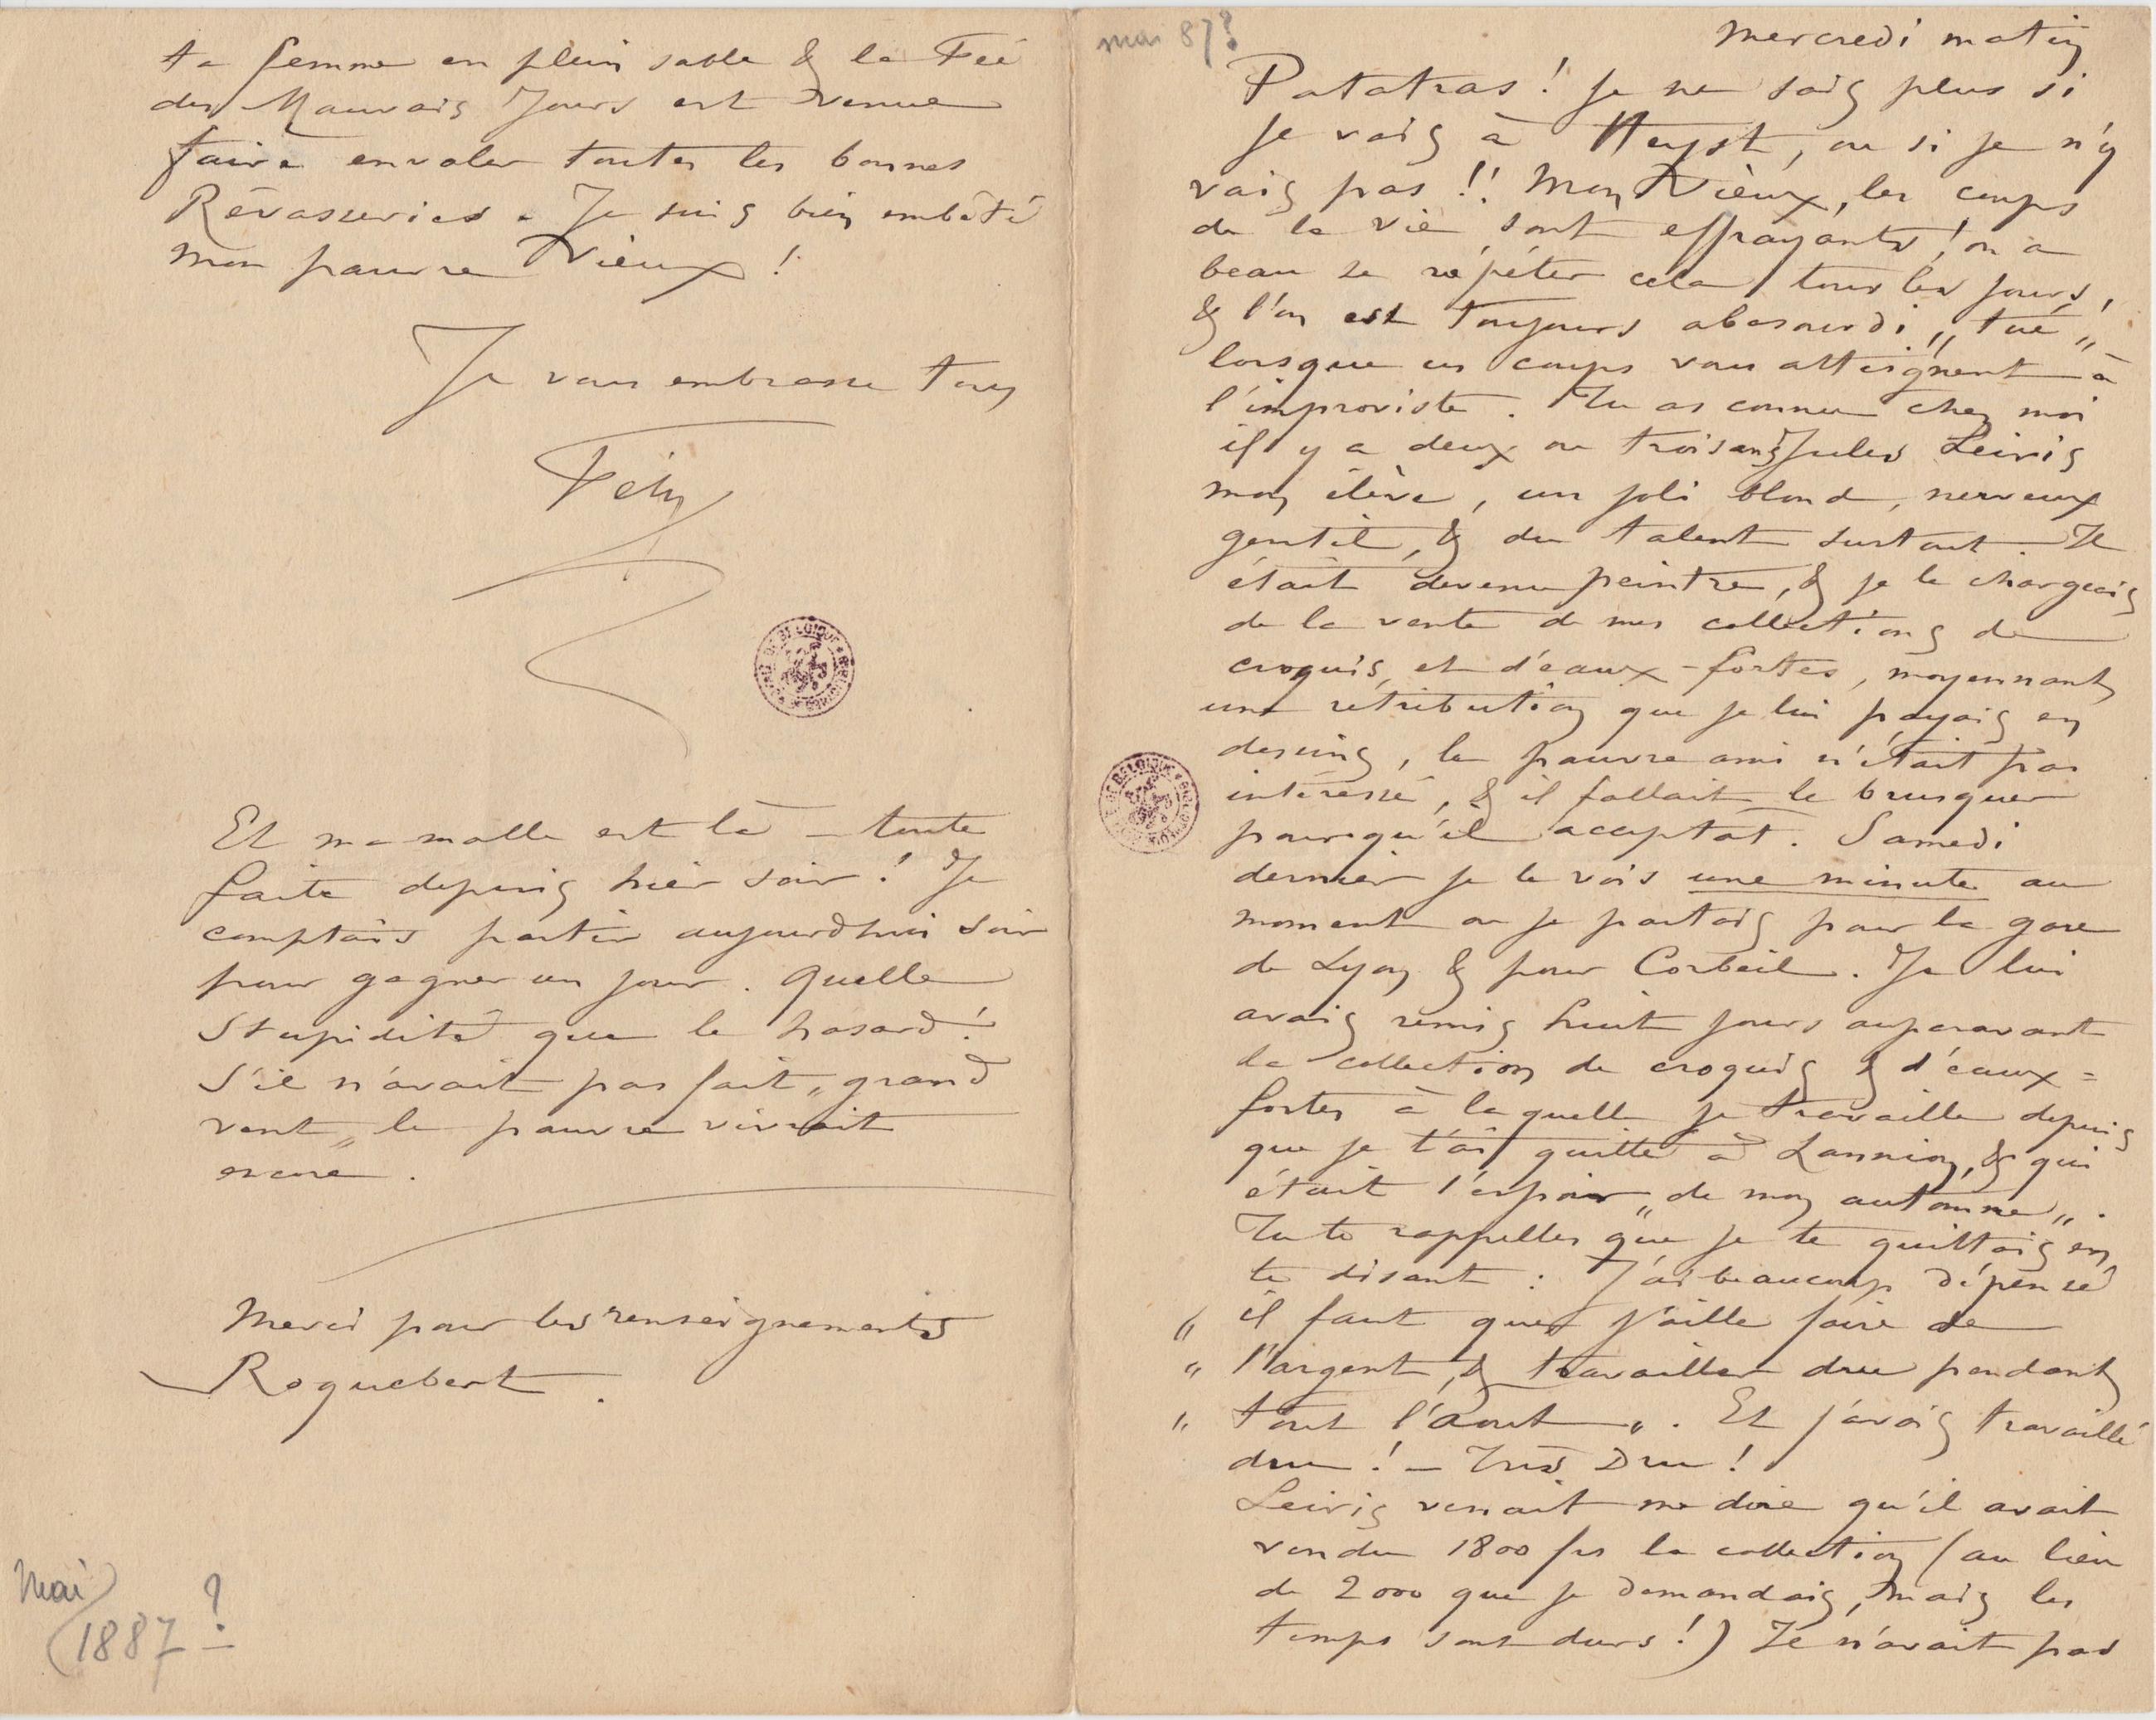 mai 87?
Mercredi matin
Patatras ! Je ne sais plus si
je vais à Heyst, ou si je n'y
vais pas !! Mon Vieux, les coups
de la vie sont effrayants ! on a
beau se répéter cela tous les jours,
& l'on est toujours abasourdi, „tué„
lorsque ces coups vous atteignent à
l'improviste. Tu as connu chez moi
il y a deux ou trois ans Jules Leiris
mon élève, un joli blond, nerveux
gentil, & du talent surtout. Il
était devenu peintre, & je le chargeais
de la vente de mes collections de
croquis et d'eaux-fortes, moyennant
une rétribution que je lui payais en
dessins, le pauvre ami n'était pas
intéressé, & il fallait le brusquer
pour qu'il acceptât. Samedi
dernier je le vois une minute au
moment ou je partais pour la gare
de Lyon & pour Corbeil. Je lui
avais remis huit jours auparavant
la collection de croquis & d'eaux=
fortes à laquelle je travaille depuis
que je t'ai quitté à Lannion, & qui
était l'espoir „de mon automne„.
Tu te rappelles que je te quittais en
te disant : J'ai beaucoup dépensé
„ il faut que j'aille faire de
„ l'argent, & travailler dru pendant
„ tout l'Aout„. Et j'avais travaillé
dru ! — Très Dru !
Leiris venait me dire qu'il avait
vendu 1800 frs la collection (au lieu
de 2000 que je demandais, mais les
temps sont durs !) Il n'avait pas
ta femme en plein sable & la Fée
des Mauvais Jours est venue
faire envoler toutes les bonnes
Rêvasseries. Je suis bien embêté
mon pauvre Vieux !
Je vous embrasse tous
Fély
Et ma malle est là — toute
faite depuis hier soir ! Je
comptais partir aujourdhui soir
pour gagner un jour. Quelle
Stupidité que le hasard !
S'il n'avait pas fait „grand
vent„ le pauvre vivrait
encore.
Merci pour les renseignements
Roquebert.
Mai
1887 ?